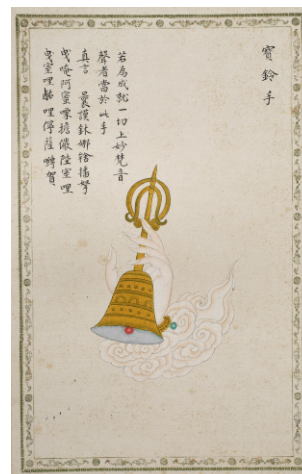 寶鈴手
若為成就一切上妙梵音
聲者當於此手
真言 曩謨鉢娜播拏
曳唵阿蜜㗚擔儼陸室哩
曳室哩哩儜薩賀